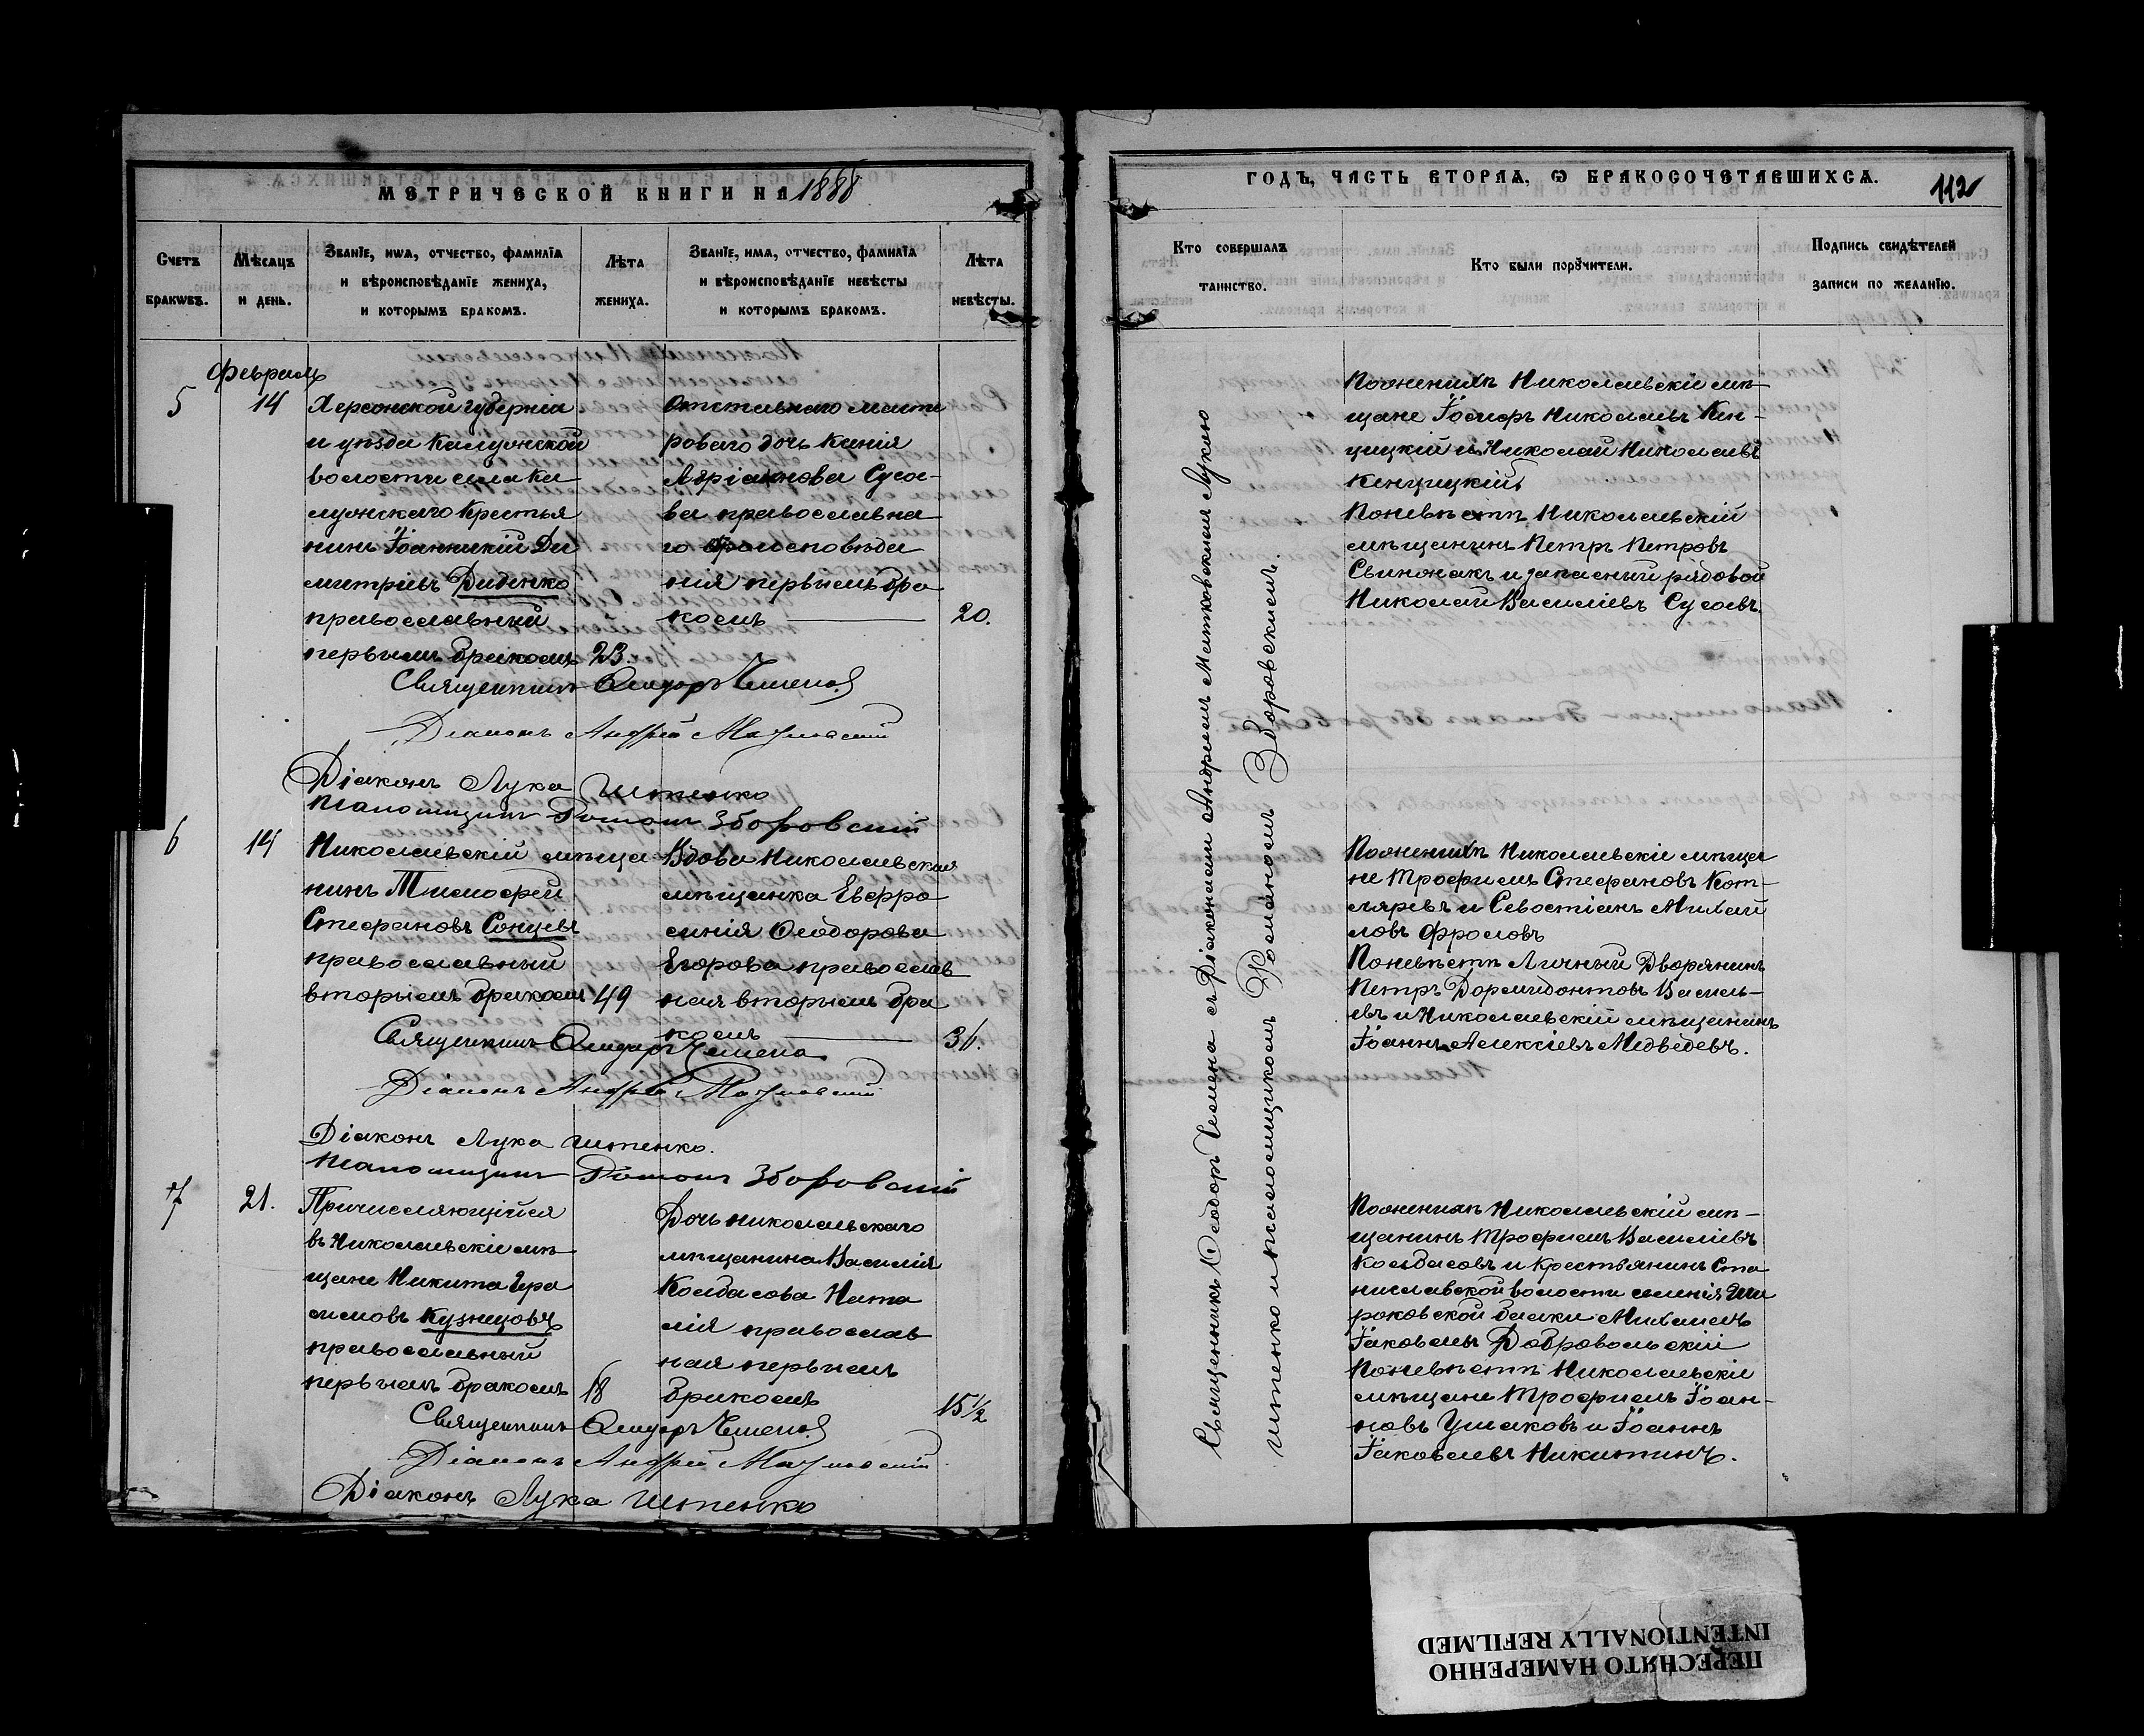 МЕТРИЧЕСКОЙ КНИГИ НА 1888
Счетъ браковъ.
Мѣсяцъ и день.
Званіе, имя, отчество, фамилія
и вѣроисповѣданіе жениха,
и которымъ бракомъ.
Лѣта жениха.
Званіе, имя, отчество, фамилія
и вѣроисповѣданіе невѣсты
и которымъ бракомъ.
Лѣта невѣсты.
Февраль
5
14
Херсонской губерніи
и уѣзда Калужской
волости села Ка
лужскаго Крестья
нинъ Іоанникій Ди
митріевъ Диденко
православный
первымъ бракомъ
23.
Отставнаго
роваго дочь Ксенія
Адріанова Сусо-
ва православна
го вѣроисповѣда
нія первымъ бра
комъ
20.
Священникъ Ѳеодоръ Чемена
Діаконъ Андрей
Діаконъ Лука Штенко
Псаломщикъ Романъ Зборовскій
6
14
Николаевскій мѣща
нинъ Тимофей
Стефановъ Сонцевъ
православный
вторымъ бракомъ
49
Вдова Николаевская
мѣщанка Евфро
синія Ѳеодорова
Егорова православ
ная вторымъ бра
комъ
36.
Священникъ Ѳеодоръ Чемена
Діаконъ Андрей
Діаконъ Лука Штенко.
Псаломщикъ Романъ Зборовскій
7
21.
Причисляющійся
въ Николаевскіе мѣ
щане Никита Гера
симовъ Кузнецовъ
православный
первымъ бракомъ
18
Дочь николаевскаго
мѣщанина Василія
Колбасова Ната
лія православ
ная первымъ
бракомъ
15 1/2
Священникъ Ѳеодоръ Чемена
Діаконъ Андрей
Діаконъ Лука Штенко
ГОДЪ, ЧАСТЬ ВТОРАЯ, Ѡ БРАКОСОЧЕТАВШИХСЯ.
112
Кто совершалъ таинство.
Кто были поручители.
Подпись свидѣтелей
записи по желанію.
Священникъ Ѳеодоръ Чемена съ Діаконами Андреемъ Лукою
Штенко и псаломщикомъ Романомъ Зборовскимъ.
По женихѣ Николаевскіе мѣ-
щане Іосифъ Николаевъ Кен-
цицкій и Николай Николаевъ
Кенцицкій
По невѣстѣ Николаевскій
мѣщанинъ Петръ Петровъ
Свинонакъ и запасный рядовой
Николай Василіевъ Сусовъ.
По женихѣ Николаевскіе мѣща
не Трофимъ Стефановъ Кот-
ляревъ и Севостіанъ Михай
ловъ Фроловъ
По невѣстѣ Личный Дворянинъ
Петръ Дормидонтовъ Василь-
евъ и Николаевскій мѣщанинъ
Іоаннъ Алексіевъ Медвѣдевъ.
По женихѣ Николаевскій мѣ-
щанинъ Трофимъ Василіевъ
Колбасовъ и Крестьянинъ Ста
ниславской волости селенія Ши
роковской балки Михаилъ
Іаковлевъ Добровольскій
По невѣстѣ Николаевскіе
мѣщане Трофимъ Іоан-
новъ Ушаковъ и Іоаннъ
Іаковлевъ Никитинъ.
ПЕРЕСНЯТО НАМЕРЕННО
INTENTIONALLY REFILMED